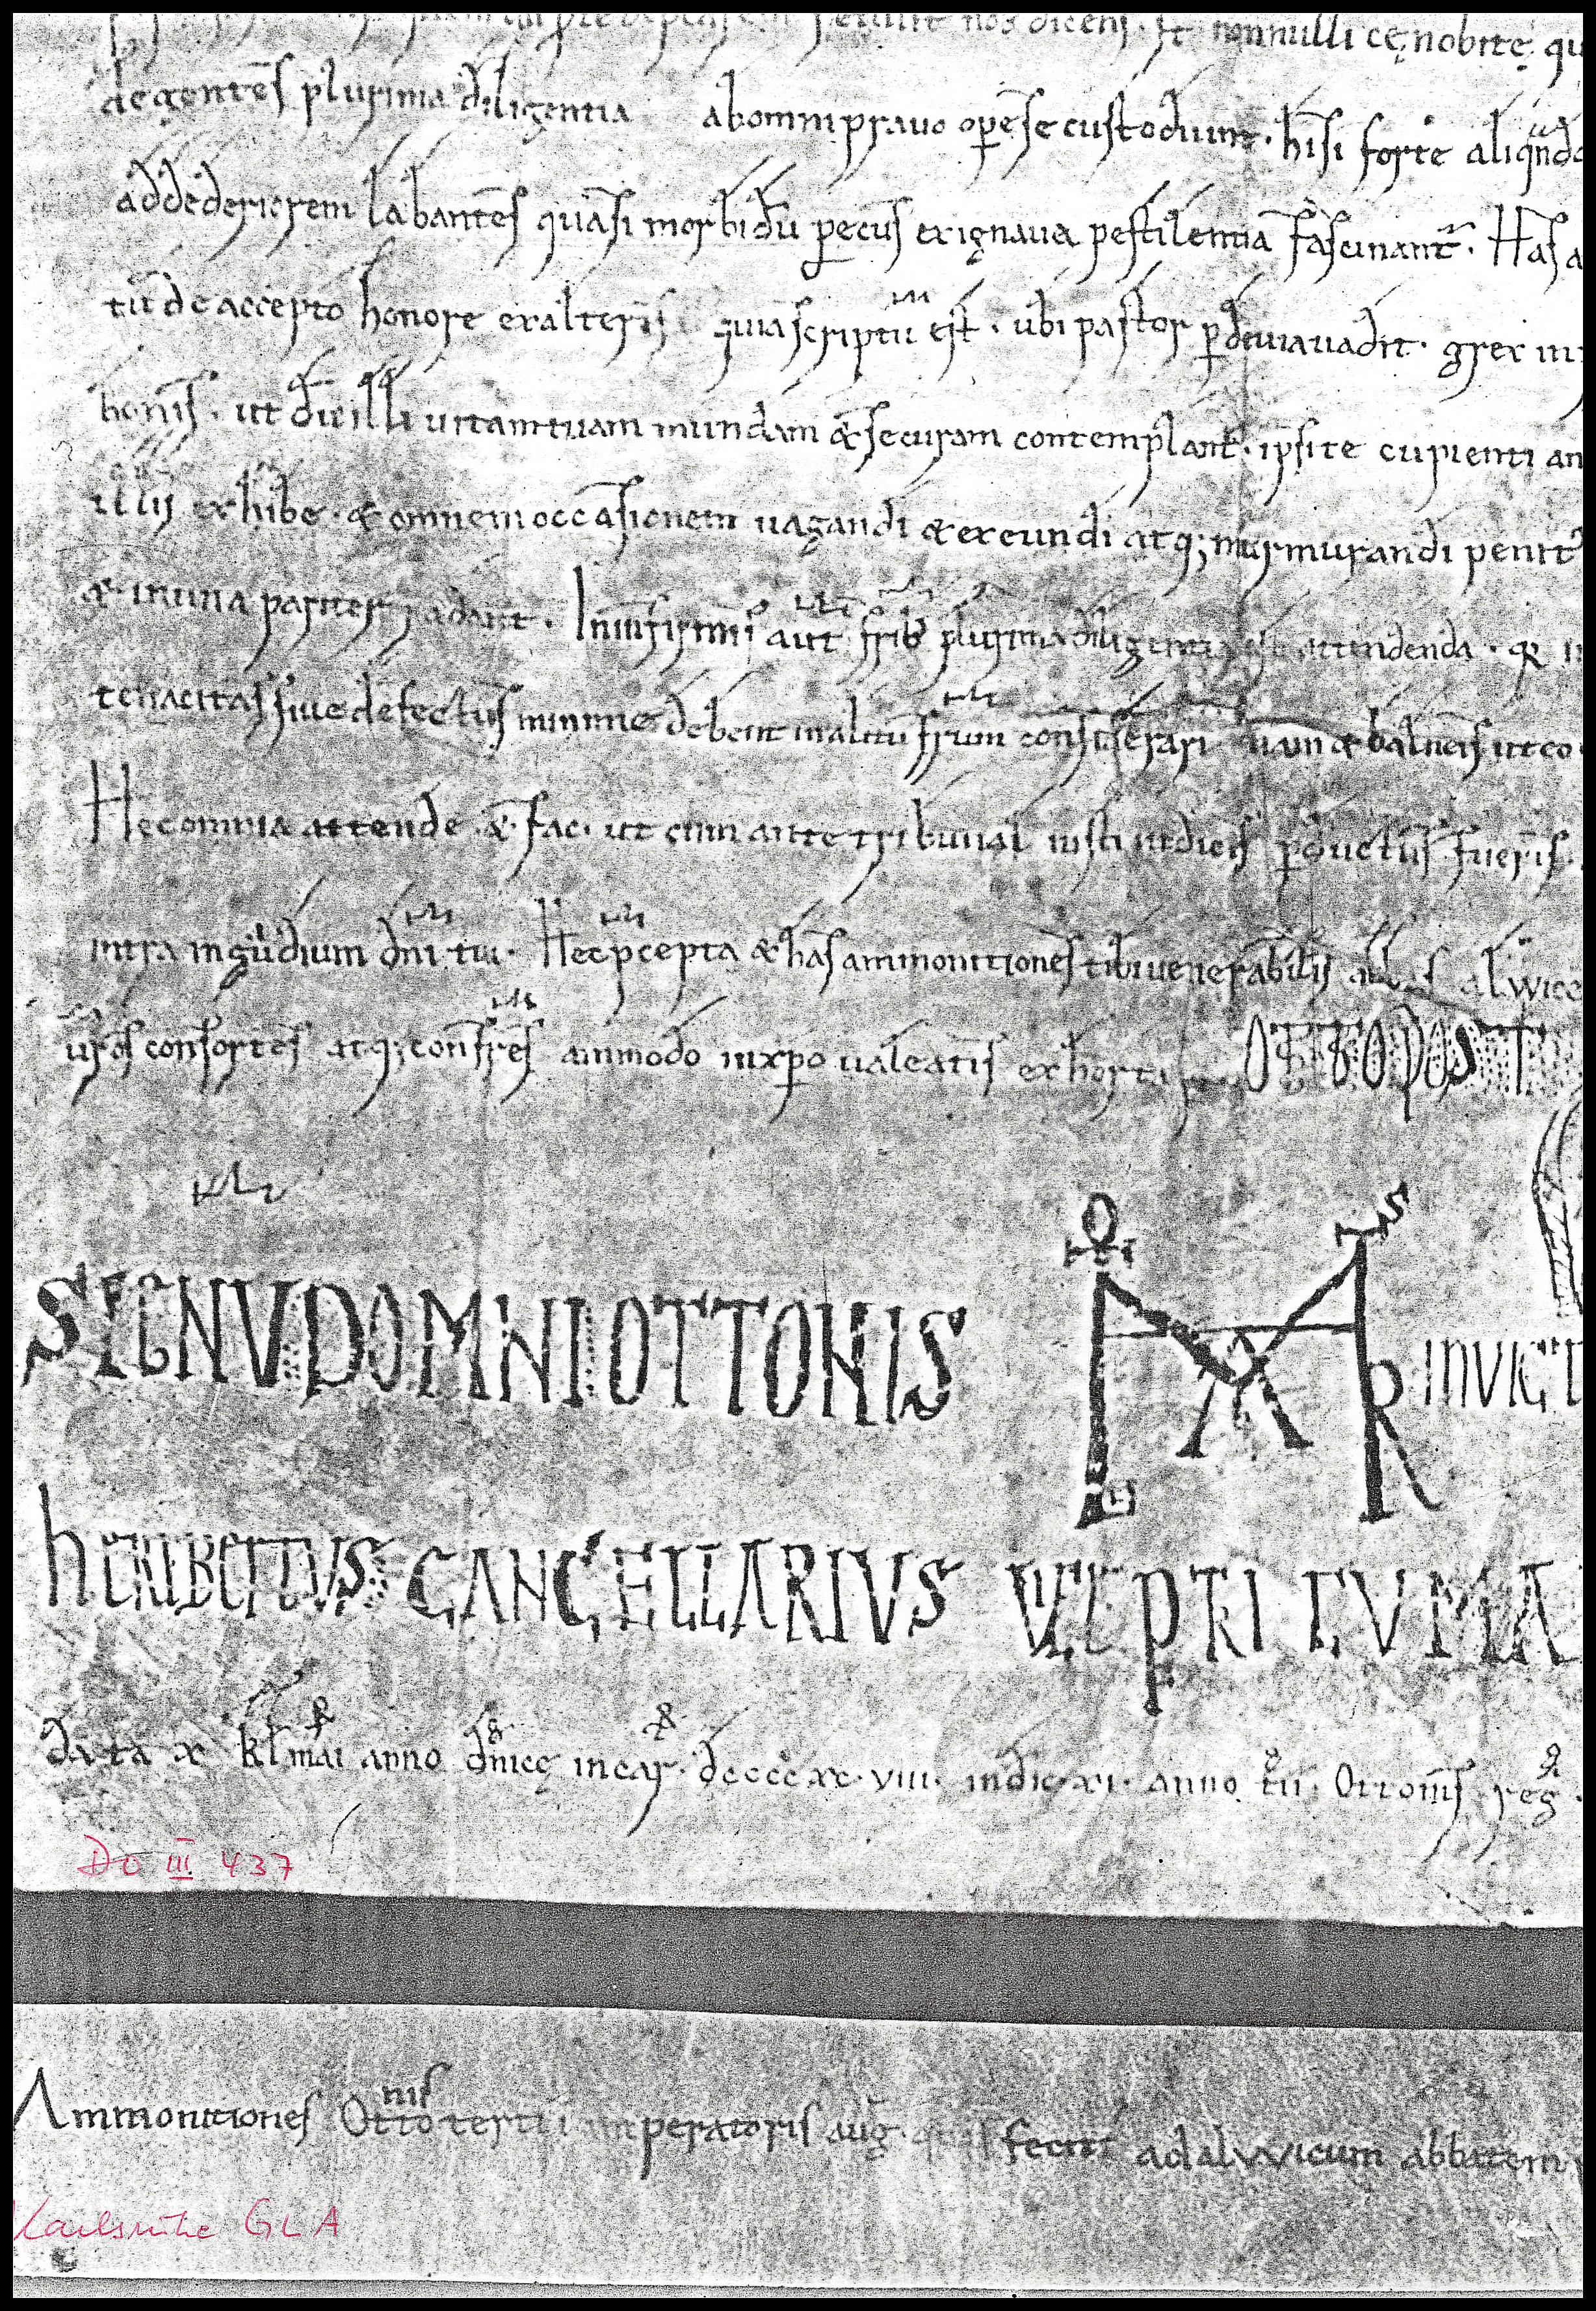 nos dicens. Et nonnulli cęnobitę qu
degentes plurima diligentia ab omni pravo ope se custodiunt. hi si forte aliqndo
ad deteriorem labantes quasi morbidu pecus ex ignava pestilentia fascinant. Has a
tu de accepto honore exalteris quia scriptu est. ubi pastor p devia vadit. grex in
bonis. ut du illi vitam tuam mundam & securam contemplant. ipsi te cupienti an
illis exhibe. & omnem occasionem vagandi & exeundi atq; murmurandi penit
& in una pariter cadant. In infirmis aut frib plurima diligentia est attendenda. qa in
tenacitas sive defectus minime debent in alitu frum considerari nam & balneis ut eo
Hec omnia attende & fac. ut cum ante tribunal iusti iudicis pductus fueris.
intra in gaudium dni tui. Hec pcepta & has ammonitiones tibi venerabilis abbas alwice
vros consortes atq; confres ammodo in xpo valeatis exhorta OTTO POST
SIGNV DOMNI OTTONIS INVICT
hERIBERTVS CANCELLARIVS VICE PETRI CVMA
data x kl mai anno dnicę incar. dcccc xc. viii. indic xi. anno tcii. Ottonis reg.
DO III 437
Ammonitiones Ottonis tertii imperatoris aug. quas fecit ad alvvicum abbatem
Karlsruhe GLA